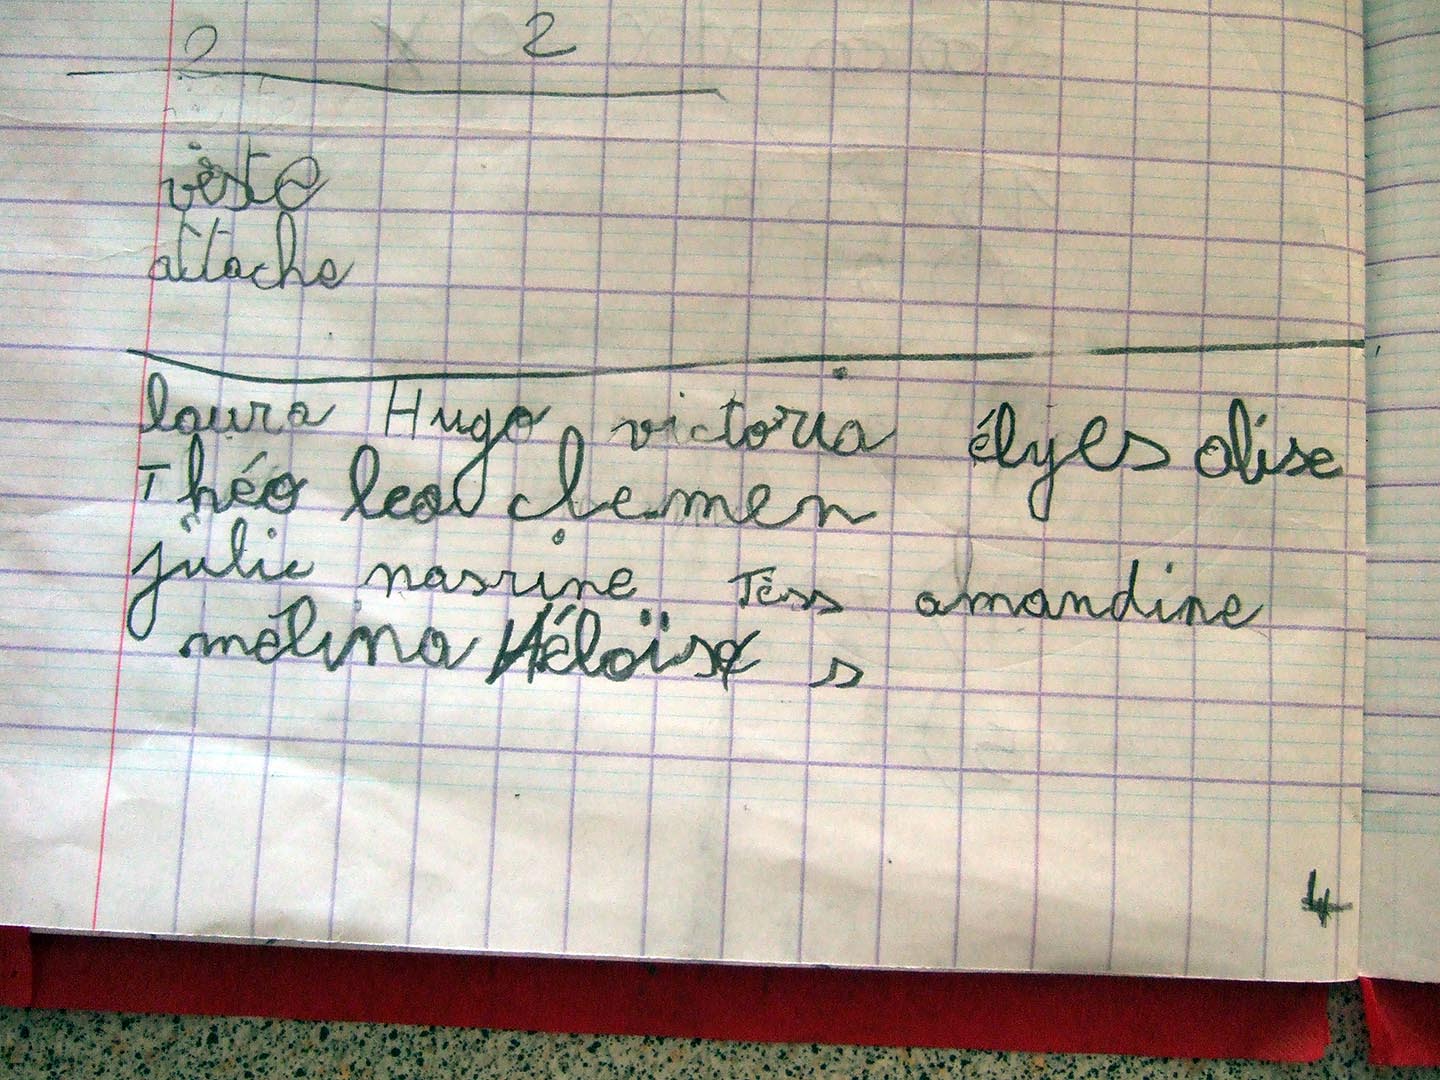 2 2
veste
attache
laura Hugo victoria élyes alise
Théo leo clemen
julie nasrine Tess amandine
mélina Héloïse s
4